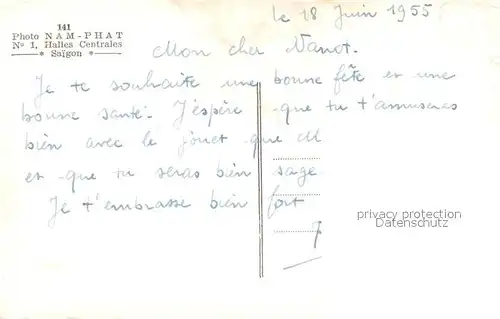 141
Photo NAM-PHAT
Nº 1, Halles Centrales
Saïgon
le 18 Juin 1955
Mon cher Nanot.
Je te souhaite une bonne fête et une
bonne santé. J'éspère que tu t'amuseras
bien avec le jouet que M
et que tu seras bien sage.
Je t'embrasse bien fort
privacy protection
Datenschutz